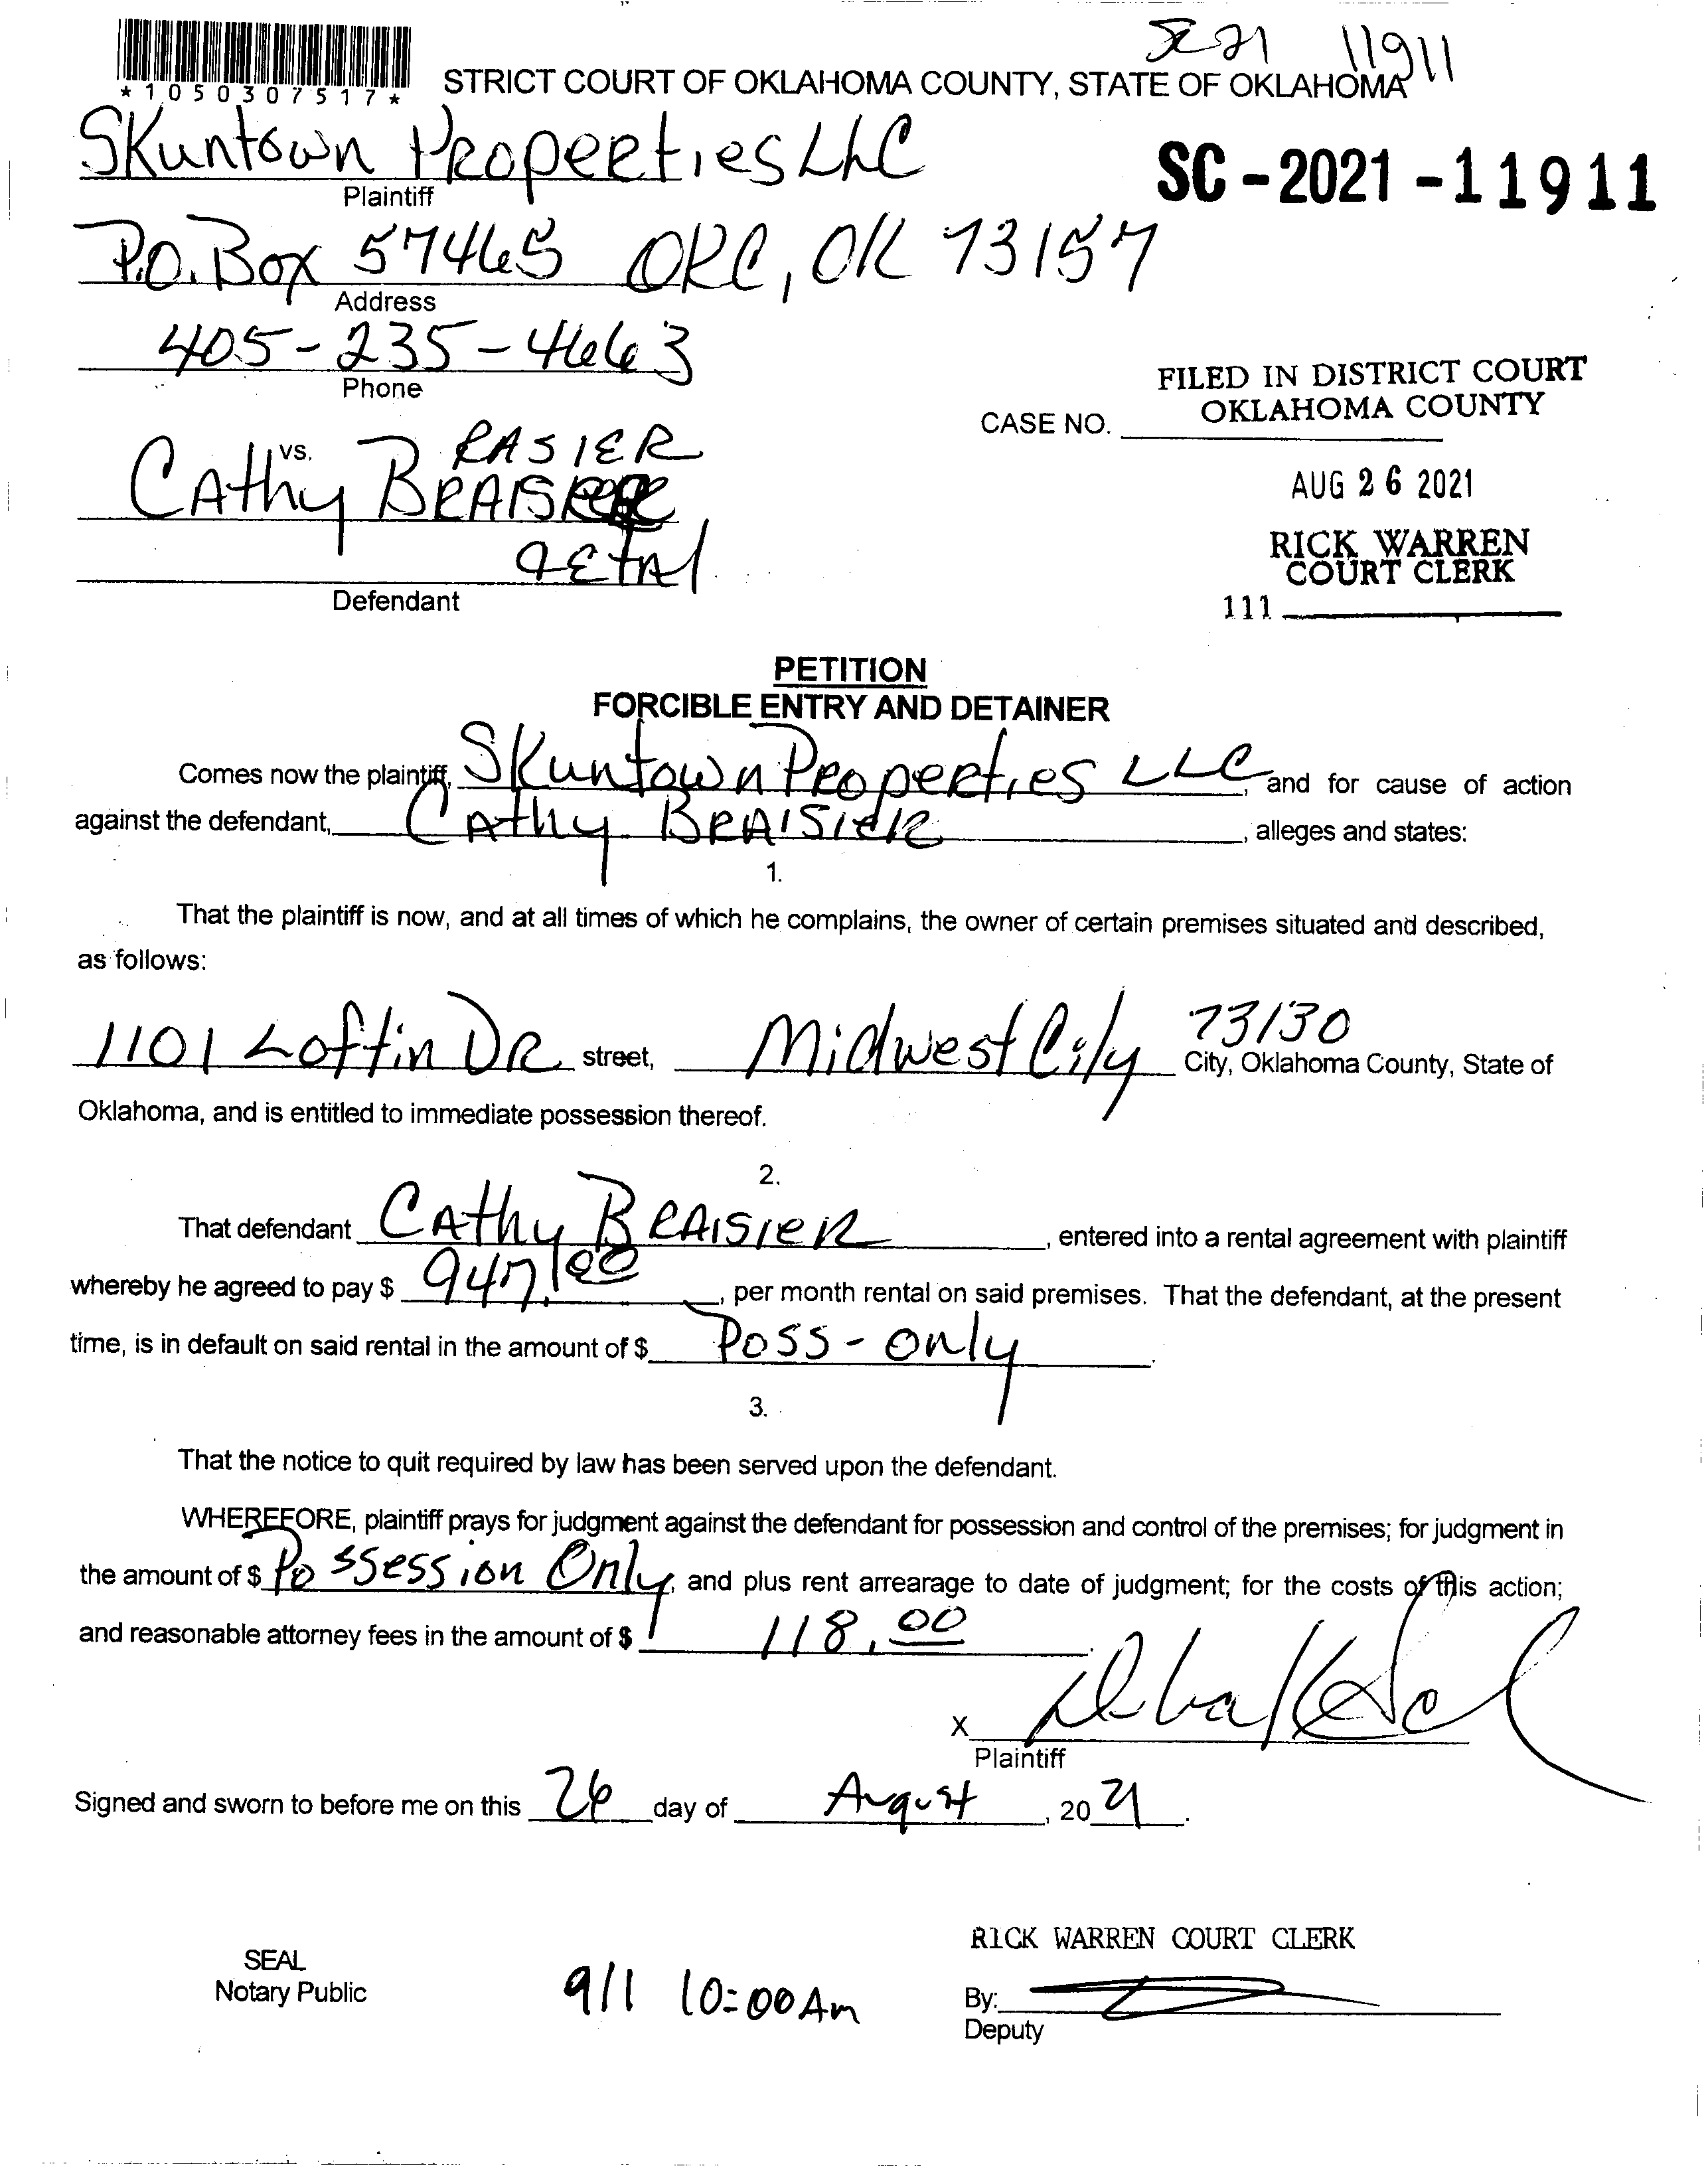 SC 21 11911
*1050307517*
STRICT COURT OF OKLAHOMA COUNTY, STATE OF OKLAHOMA
Skuntown Properties LLC
Plaintiff
SC-2021-11911
P.O. Box 57465 OKC, OK 73157
Address
405-235-4663
Phone
FILED IN DISTRICT COURT
OKLAHOMA COUNTY
CASE NO.
vs.
RASIER
Cathy BRAIS
AUG 26 2021
RICK WARREN
COURT CLERK
& Etal
Defendant
111
PETITION
FORCIBLE ENTRY AND DETAINER
Comes now the plaintiff, Skuntown Properties LLC, and for cause of action
against the defendant, Cathy BRAISIER, alleges and states:
1.
That the plaintiff is now, and at all times of which he complains, the owner of certain premises situated and described,
as follows:
1101 Loftin DR street, Midwest City 73130 City, Oklahoma County, State of
Oklahoma, and is entitled to immediate possession thereof.
2.
That defendant Cathy BRAISIER, entered into a rental agreement with plaintiff
whereby he agreed to pay $ 947.00, per month rental on said premises. That the defendant, at the present
time, is in default on said rental in the amount of $ Poss-only.
3.
That the notice to quit required by law has been served upon the defendant.
WHEREFORE, plaintiff prays for judgment against the defendant for possession and control of the premises; for judgment in
the amount of $ Possession Only, and plus rent arrearage to date of judgment; for the costs of this action;
and reasonable attorney fees in the amount of $ 118.00.
X
Plaintiff
Signed and sworn to before me on this 26 day of August, 20 21.
RICK WARREN COURT CLERK
SEAL
Notary Public
9/1 10:00 Am
By:
Deputy